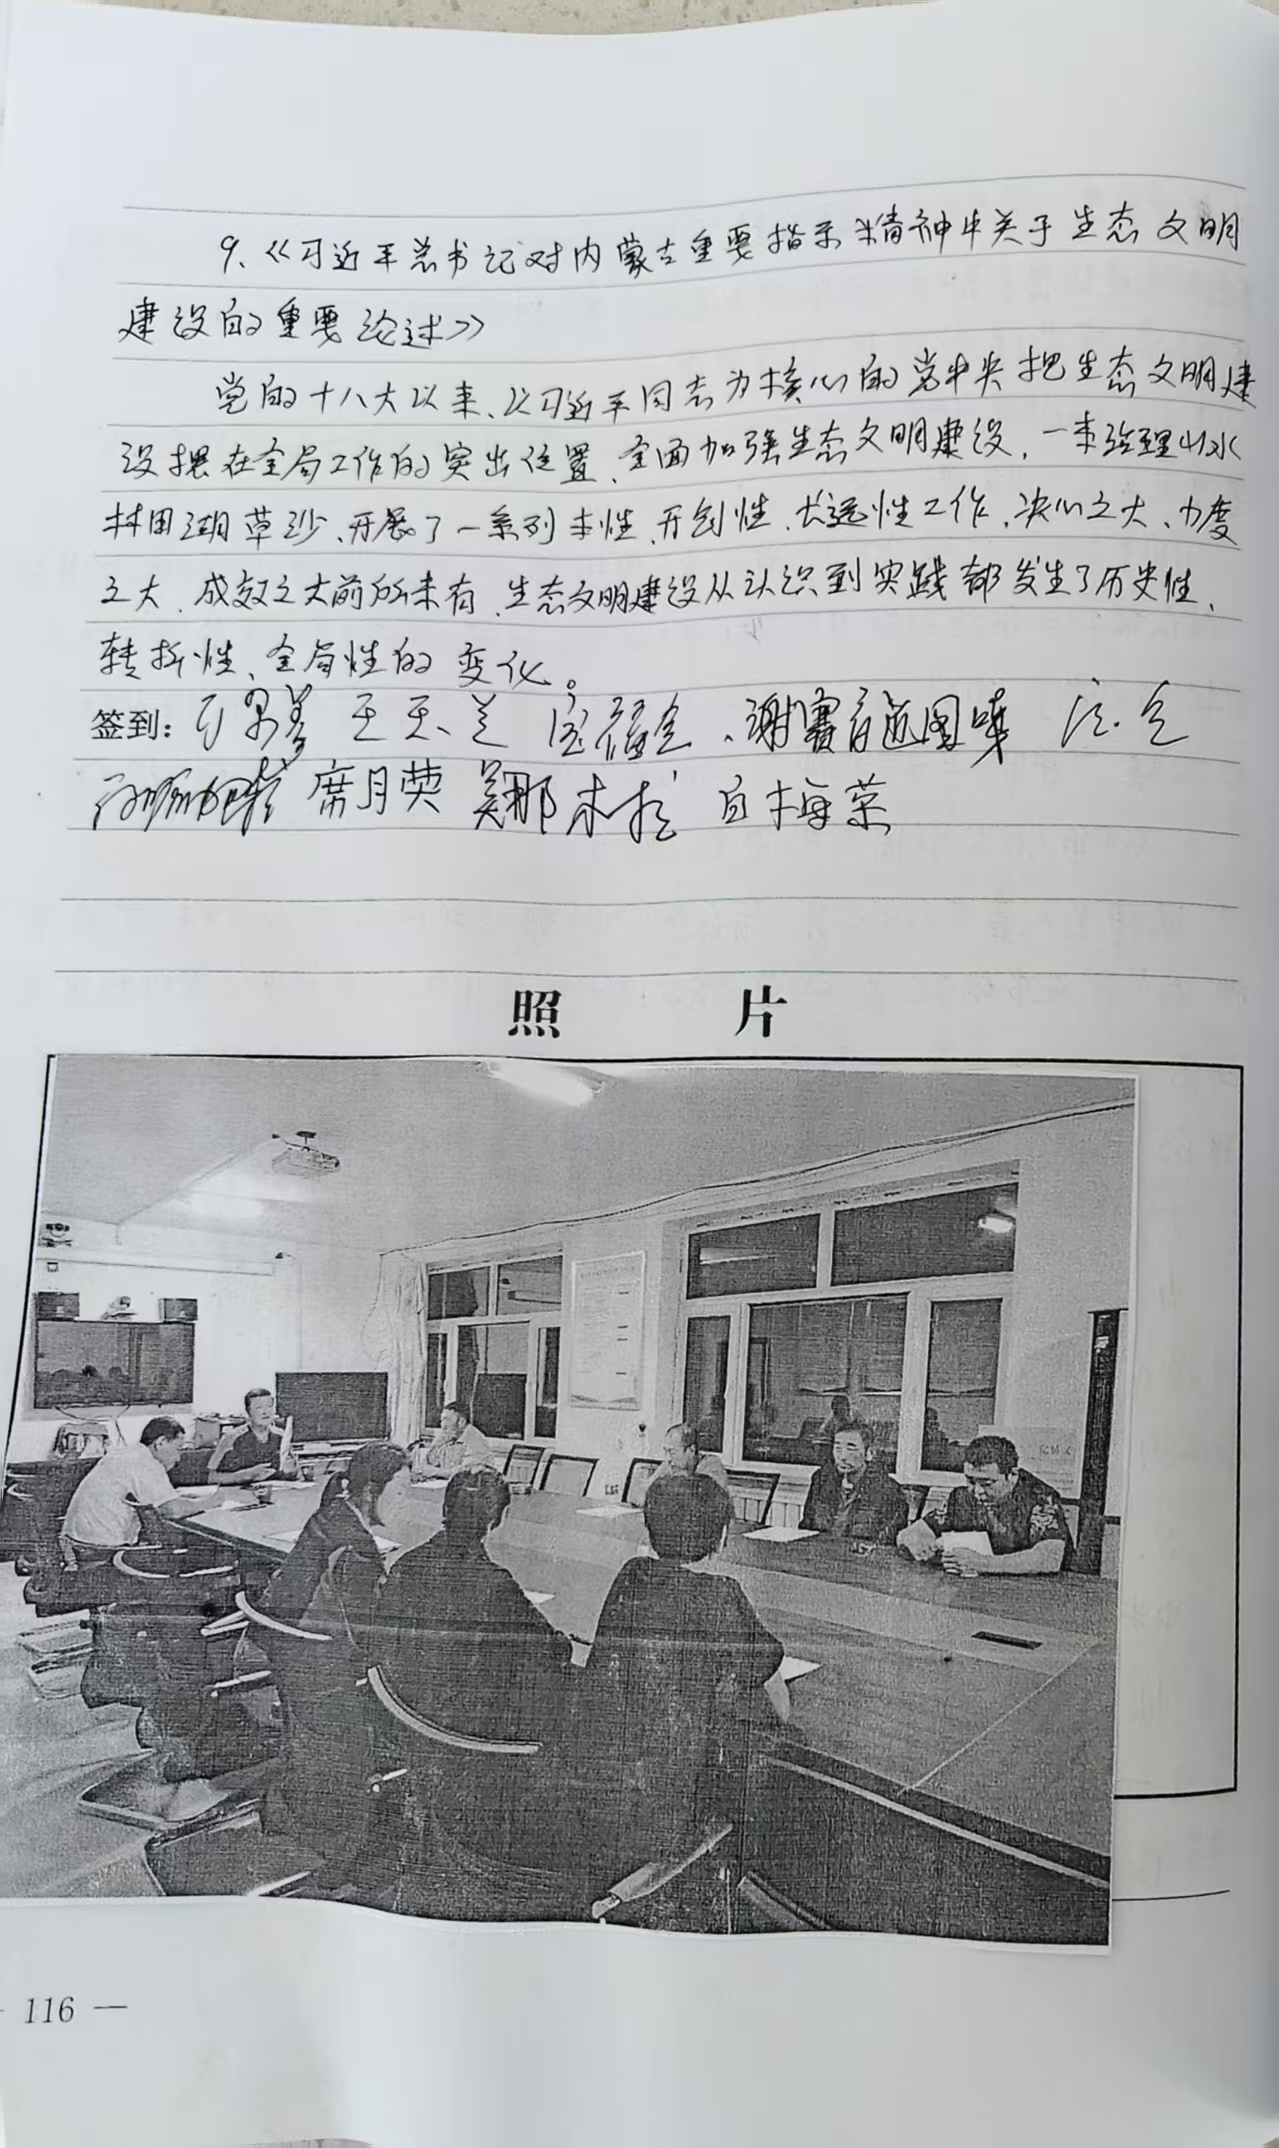 9、《习近平总书记对内蒙古重要指示精神中关于生态文明
建设的重要论述》
党的十八大以来、以习近平同志为核心的党中央把生态文明建
设摆在全局工作的突出位置、全面加强生态文明建设，一本治理山水
林田湖草沙、开展了一系列本性、开创性、长远性工作、决心之大、力度
之大、成效之大前所未有、生态文明建设从认识到实践都发生了历史性、
转折性、全局性的变化。
签到：王天兰 宝福全、谢赛音道图嘎
席月英 那木拉 白梅荣
照 片
116 —